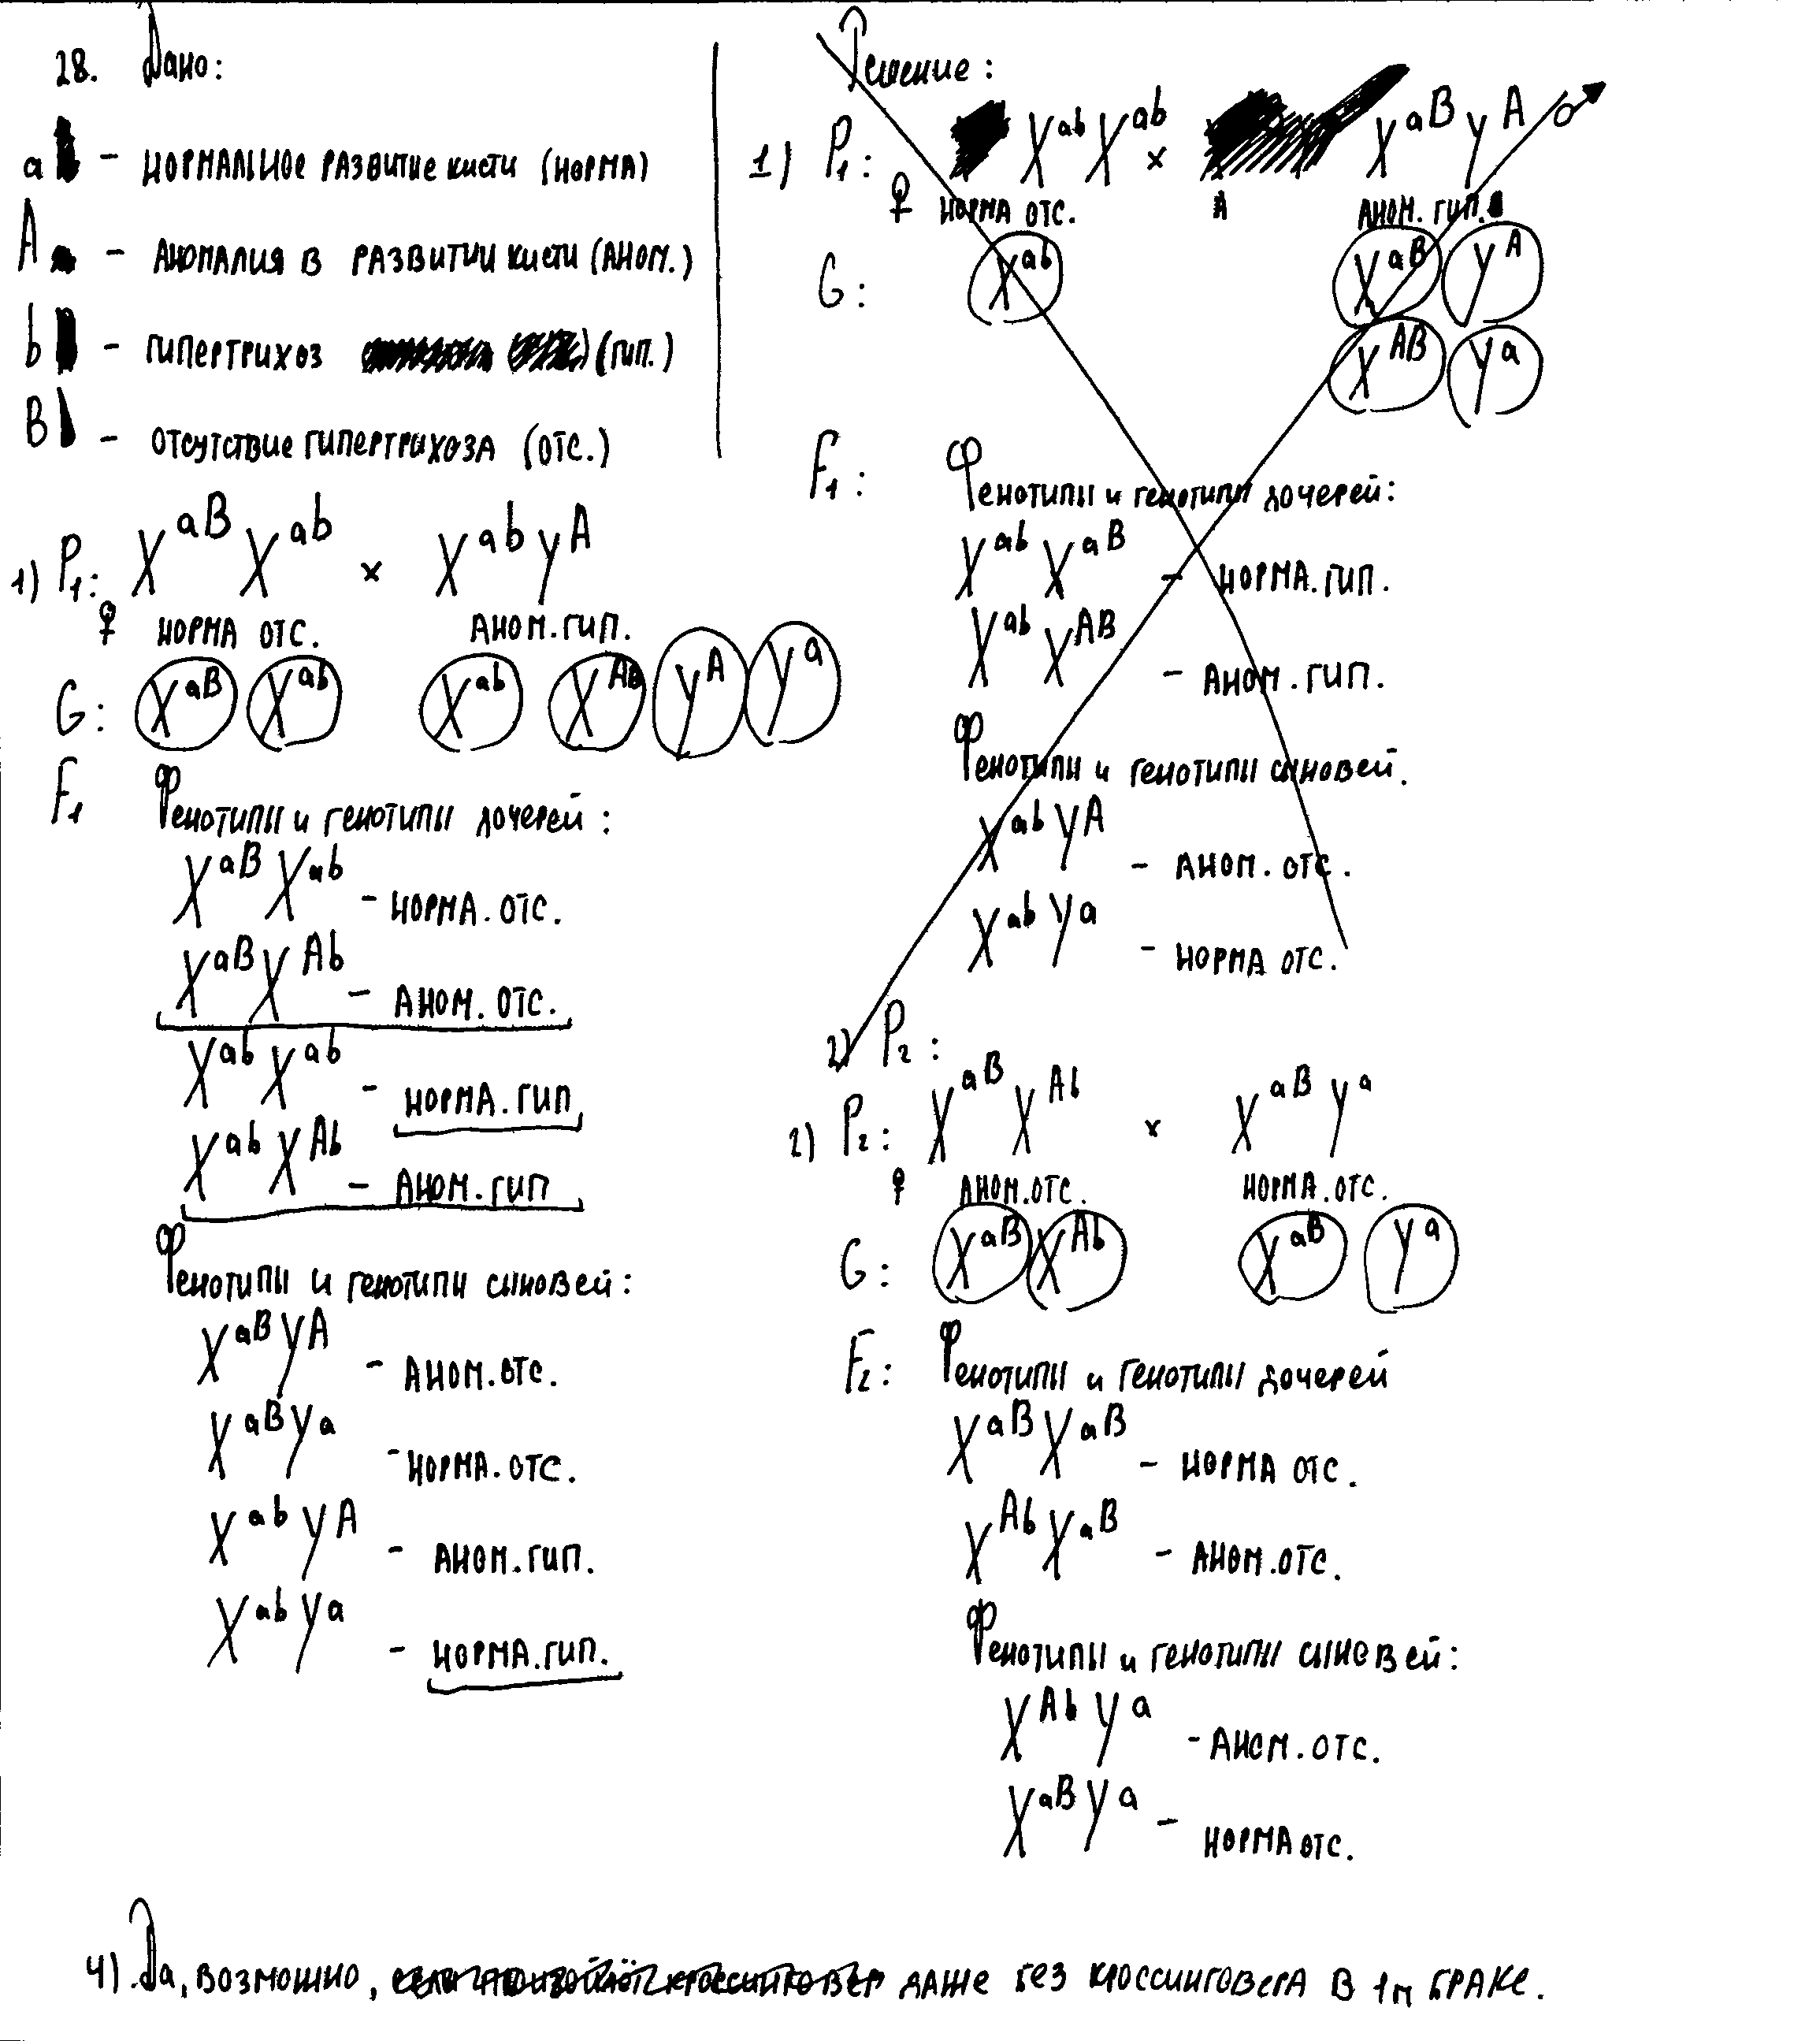 28. Дано:
a – нормальное развитие кисти (норма)
A – аномалия в развитии кисти (аном.)
b – гипертрихоз (гип.)
B – отсутствие гипертрихоза (отс.)
1) P₁: X^aB X^ab × X^ab Y^A
♀ норма отс. аном. гип.
G: X^aB X^ab X^ab X^Ab Y^A Y^a
F₁ Фенотипы и генотипы дочерей:
X^aB X^ab – норма. отс.
X^aB X^Ab – аном. отс.
X^ab X^ab – норма. гип
X^ab X^Ab – аном. гип
Фенотипы и генотипы сыновей:
X^aB Y^A – аном. отс.
X^aB Y^a – норма. отс.
X^ab Y^A – аном. гип.
X^ab Y^a – норма. гип.
Решение:
1) P₁: X^ab X^ab × X^aB Y^A ♂
♀ норма отс. аном. гип.
G: X^ab X^aB Y^A
X^AB Y^a
F₁: Фенотипы и генотипы дочерей:
X^ab X^aB – норма. гип.
X^ab X^AB – аном. гип.
Фенотипы и генотипы сыновей.
X^ab Y^A – аном. отс.
X^ab Y^a – норма отс.
2) P₂:
2) P₂: X^aB X^Ab × X^aB Y^a
♀ аном. отс. норма. отс.
G: X^aB X^Ab X^aB Y^a
F₂: Фенотипы и генотипы дочерей
X^aB X^aB – норма отс.
X^Ab X^aB – аном. отс.
Фенотипы и генотипы сыновей:
X^Ab Y^a – аном. отс.
X^aB Y^a – норма отс.
4). Да, возможно, если произойдёт кроссинговер даже без кроссинговера в 1м браке.